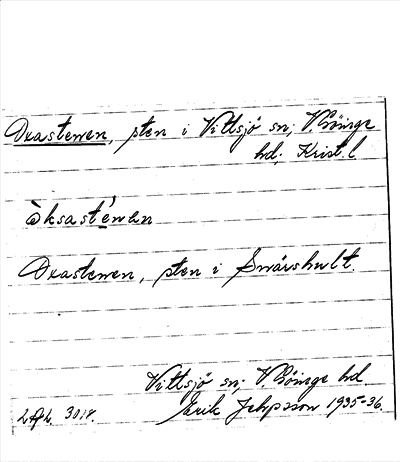 Oxastenen, sten i Vittsjö sn; V. Göinge
hd; Krist. l.
òksasténen
Oxastenen, sten i Smårshult.
Vittsjö sn; V. Göinge hd.
3018. Erik Jeppsson 1935-36.